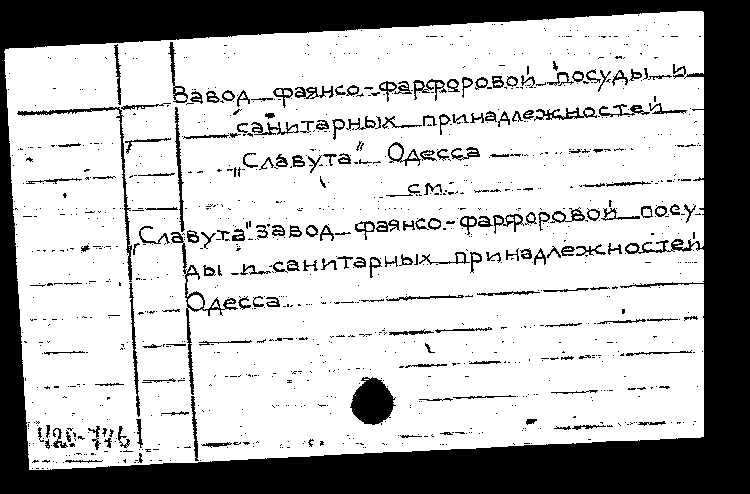 Завод фаянсо-фарфоровой посуды и
санитарных принадлежностей
„Славута" Одесса
см.
„Славута" завод фаянсо-фарфоровой посу-
ды и санитарных принадлежностей
Одесса
420-746